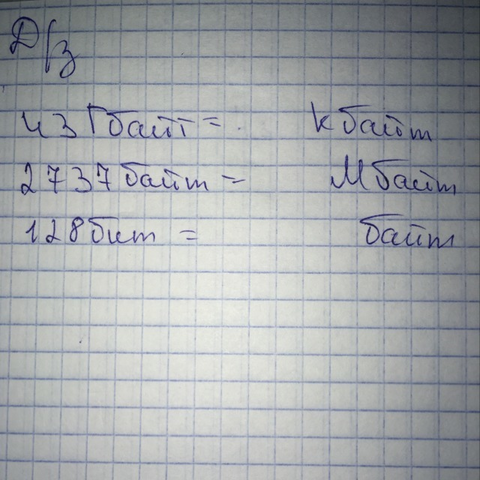 Д/з
43 Гбайт = Кбайт
2737 байт = Мбайт
128 бит = байт